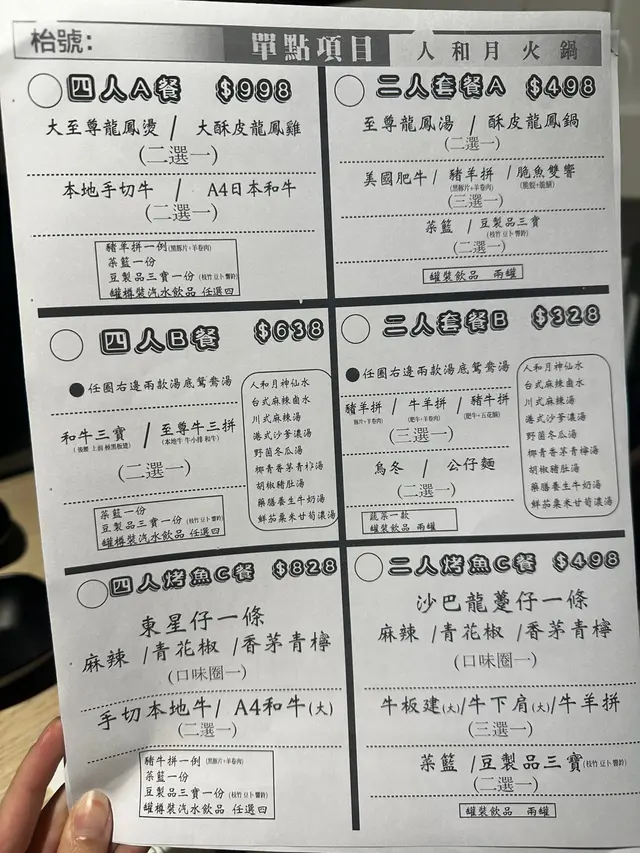 枱號：
單點項目
人和月火鍋
四人A餐 $998
大至尊龍鳳煲 / 大酥皮龍鳳雞
(二選一)
本地手切牛 / A4日本和牛
(二選一)
豬羊拼一例(黑豚片+羊卷肉)
菜籃一份
豆製品三寶一份(枝竹 豆卜 響鈴)
罐樽裝汽水飲品 任選四
二人套餐A $498
至尊龍鳳湯 / 酥皮龍鳳鍋
(二選一)
美國肥牛 / 豬羊拼 / 脆魚雙響
(黑豚片+羊卷肉)
(三選一)
菜籃 / 豆製品三寶
(枝竹 豆卜 響鈴)
(二選一)
罐裝飲品 兩罐
四人B餐 $638
●任圈右邊兩款湯底鴛鴦湯
和牛三寶 / 至尊牛三拼
(本地牛 牛小排 和牛)
(二選一)
菜籃一份
豆製品三寶一份(枝竹 豆卜 響鈴)
罐樽裝汽水飲品 任選四
人和月神仙水
台式麻辣鹵水
川式麻辣湯
港式沙爹濃湯
野菌冬瓜湯
椰青香茅青柠湯
胡椒豬肚湯
藥膳養生牛奶湯
鮮茄粟米甘荀濃湯
二人套餐B $328
●任圈右邊兩款湯底鴛鴦湯
豬羊拼 / 牛羊拼 / 豬牛拼
(豚片+羊卷肉) (肥牛+羊卷肉) (肥牛+五花腩)
(三選一)
烏冬 / 公仔麵
(二選一)
蔬菜一款
罐裝飲品 兩罐
人和月神仙水
台式麻辣鹵水
川式麻辣湯
港式沙爹濃湯
野菌冬瓜湯
椰青香茅青檸湯
胡椒豬肚湯
藥膳養生牛奶湯
鮮茄粟米甘荀濃湯
四人烤魚C餐 $828
東星仔一條
麻辣 /青花椒 /香茅青檸
(口味圈一)
手切本地牛/ A4和牛(大)
(二選一)
豬牛拼一例(黑豚片+羊卷肉)
菜籃一份
豆製品三寶一份(枝竹 豆卜 響鈴)
罐樽裝汽水飲品 任選四
二人烤魚C餐 $498
沙巴龍躉仔一條
麻辣 /青花椒 /香茅青檸
(口味圈一)
牛板建(大)/牛下肩(大)/牛羊拼
(三選一)
菜籃 /豆製品三寶(枝竹 豆卜 響鈴)
(二選一)
罐裝飲品 兩罐